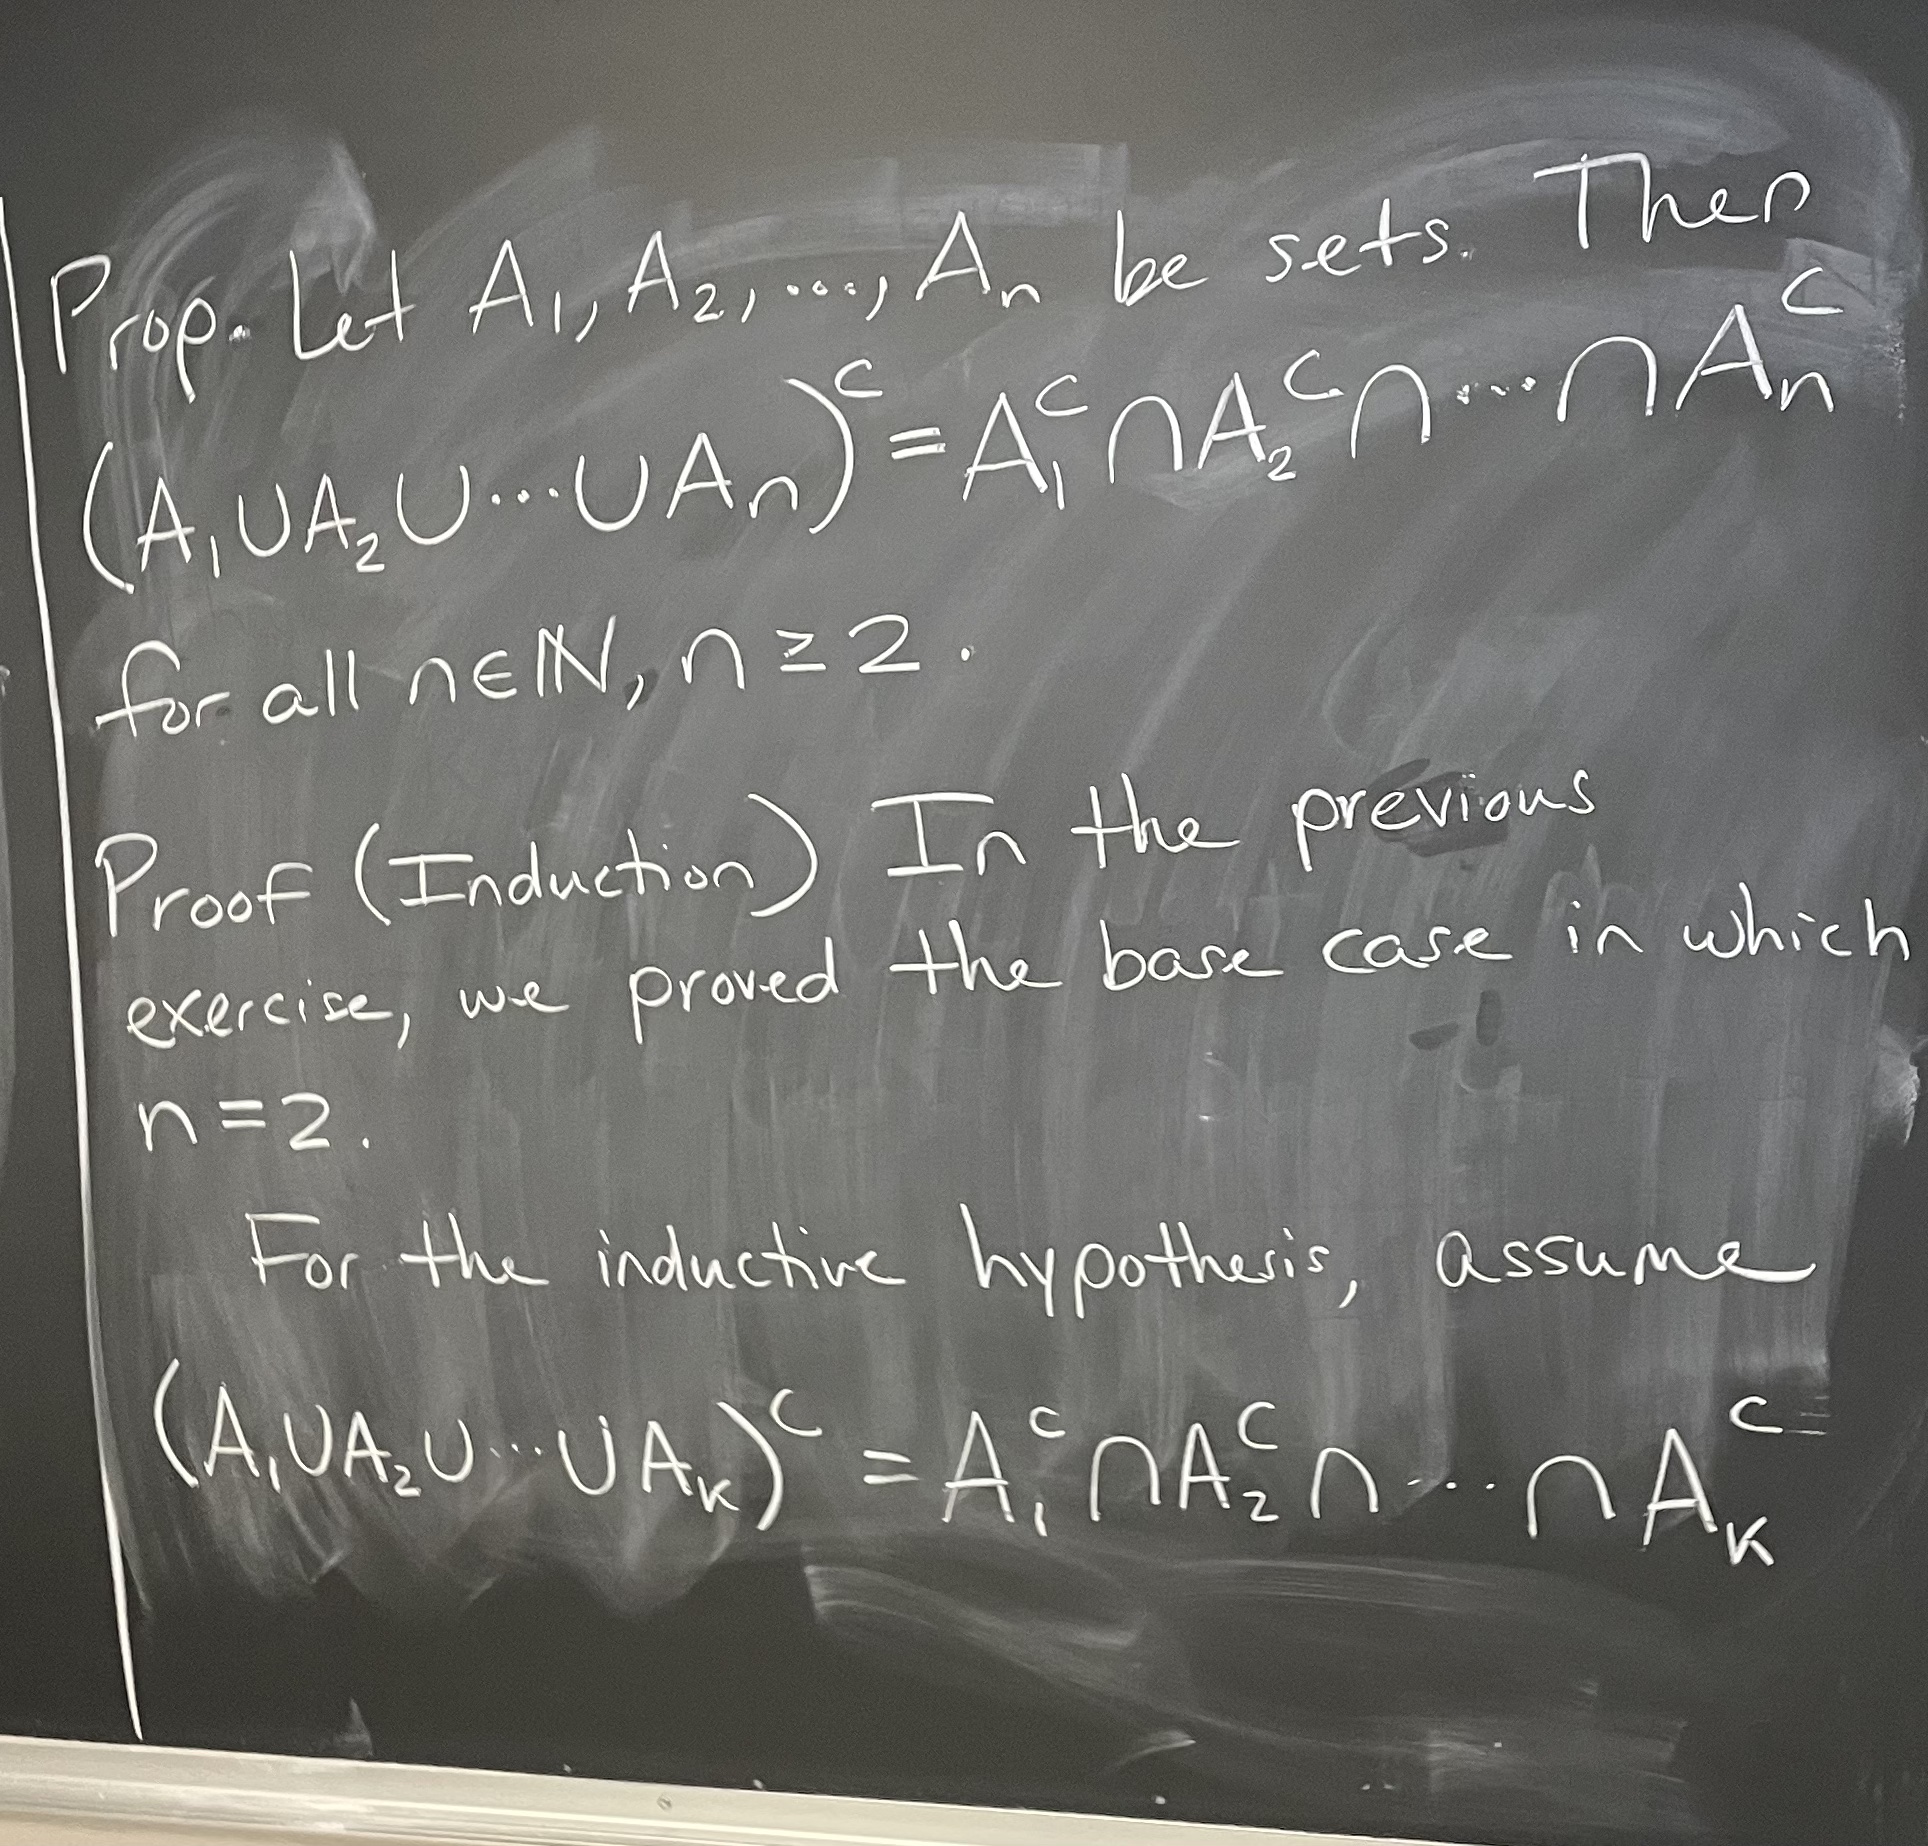 Prop. Let A₁, A₂, ..., Aₙ be sets. Then
(A₁∪A₂∪···∪Aₙ)ᶜ = A₁ᶜ∩A₂ᶜ∩···∩Aₙᶜ
for all n∈ℕ, n≥2.
Proof (Induction) In the previous
exercise, we proved the base case in which
n=2.
For the inductive hypothesis, assume
(A₁∪A₂∪···∪Aₖ)ᶜ = A₁ᶜ∩A₂ᶜ∩···∩Aₖᶜ